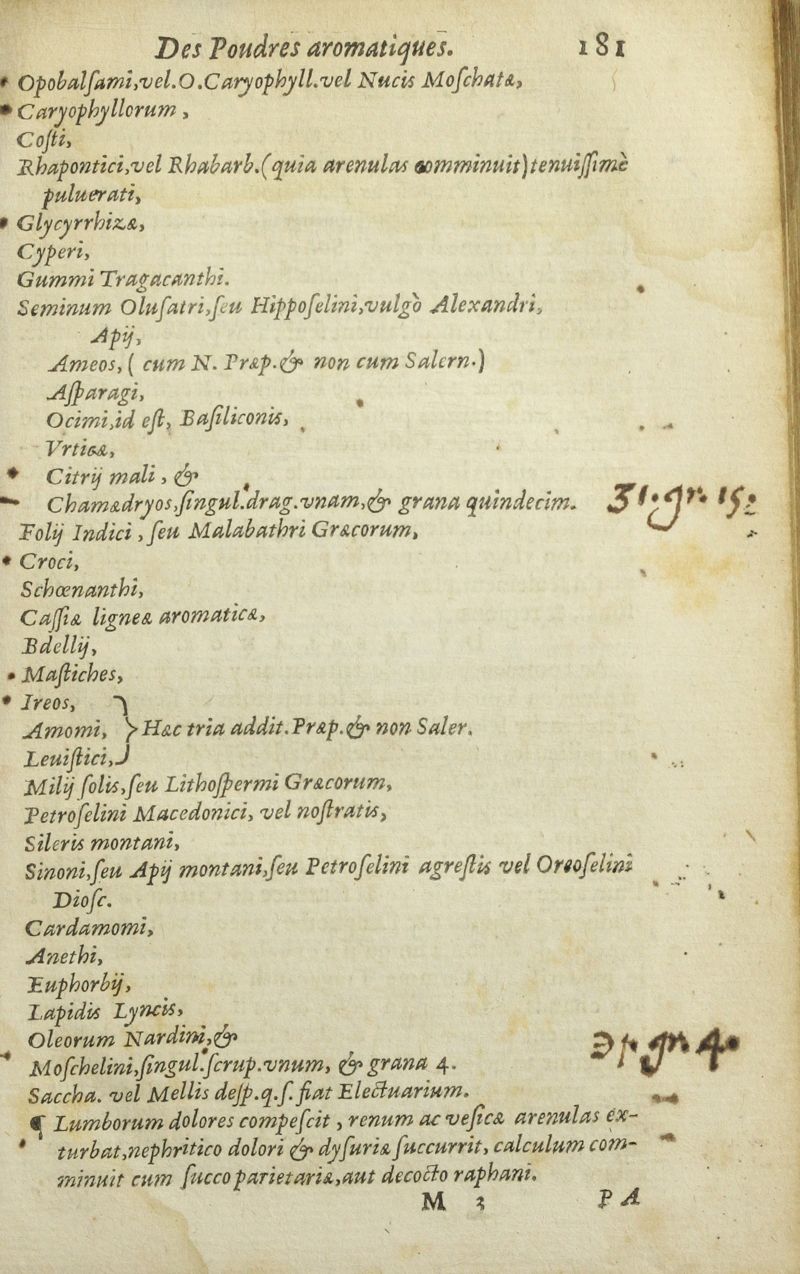 Des Poudres aromatiques. 181
Opobalſami,vel.O.Caryophyll.vel Nucis Moſchatæ,
Caryophyllorum,
Coſti,
Rhapontici,vel Rhabarb.(quia arenulas comminuit)tenuiſſimè
puluerati,
Glycyrrhizæ,
Cyperi,
Gummi Tragacanthi.
Seminum Oluſatri,ſeu Hippoſelini,vulgò Alexandri,
Apij,
Ameos,( cum N. Præp.& non cum Salern.)
Aſparagi,
Ocimi,id eſt, Baſiliconis,
Vrticæ,
Citrij mali, &
Chamædryos,ſingul.drag.vnam,& grana quindecim. ʒ1.gr. 15.
Folij Indici, ſeu Malabathri Græcorum,
Croci,
Schœnanthi,
Caſſiæ ligneæ aromaticæ,
Bdellij,
Maſtiches,
Ireos,
Amomi, } Hæc tria addit.Præp.& non Saler.
Leuiſtici,
Milij ſolis,ſeu Lithoſpermi Græcorum,
Petroſelini Macedonici, vel noſtratis,
Sileris montani,
Sinoni,ſeu Apij montani,ſeu Petroſelini agreſtis vel Oreoſelini
Dioſc.
Cardamomi,
Anethi,
Euphorbij,
Lapidis Lyncis,
Oleorum Nardini,&
Moſchelini,ſingul.ſcrup.vnum, & grana 4. ℈1. gr. 4.
Saccha. vel Mellis deſp.q.ſ.fiat Electuarium.
¶ Lumborum dolores compeſcit, renum ac veſicæ arenulas ex-
turbat,nephritico dolori & dyſuriæ ſuccurrit, calculum com-
minuit cum ſucco parietariæ,aut decocto raphani.
M 3 PA